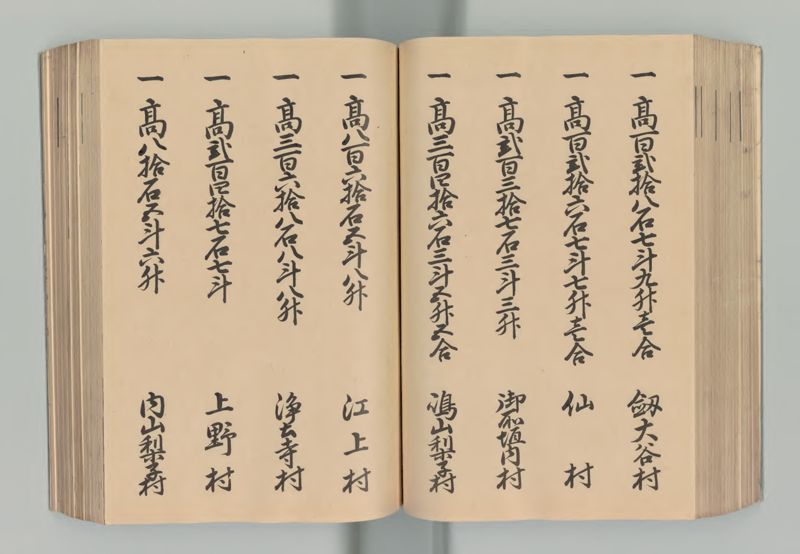 一 高一百弐拾八石七斗九升壱合 釼大谷村
一 高一百弐拾六石七斗七升壱合 仙村
一 高弐百三拾七石三斗三升 御所垣内村
一 高三百四拾六石三斗五升五合 嶋山梨子村
一 高八百六拾石五斗八升 江上村
一 高三百六拾八石八斗八升 浄土寺村
一 高弐百四拾七石七斗 上野村
一 高八拾石五斗六升 内山梨子村